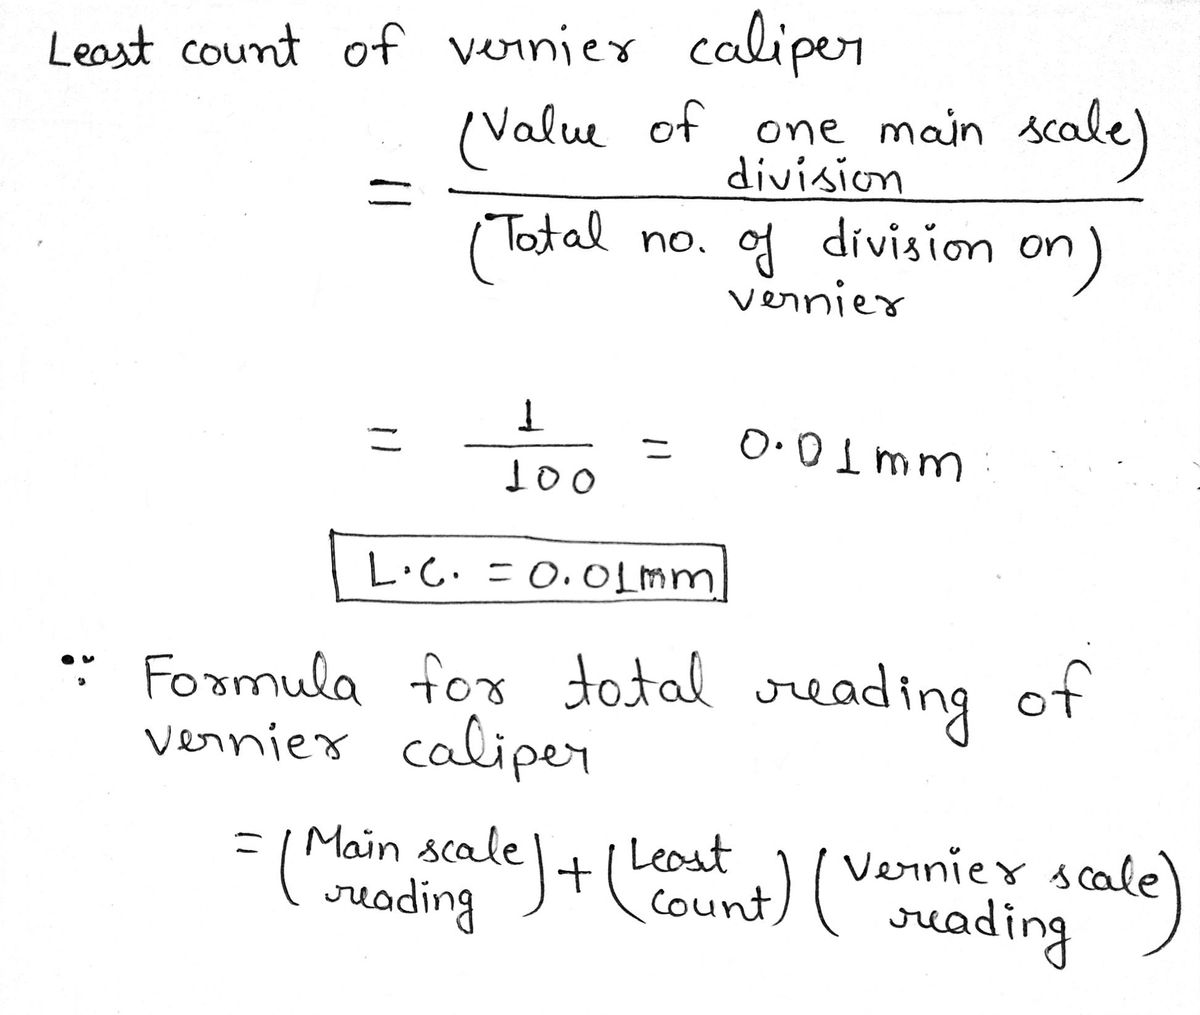 Least count of vernier caliper
= (Value of one main scale division) / (Total no. of division on vernier)
= 1/100 = 0.01mm
L.C. = 0.01mm
∵ Formula for total reading of
vernier caliper
= (Main scale reading) + (Least count) (Vernier scale reading)